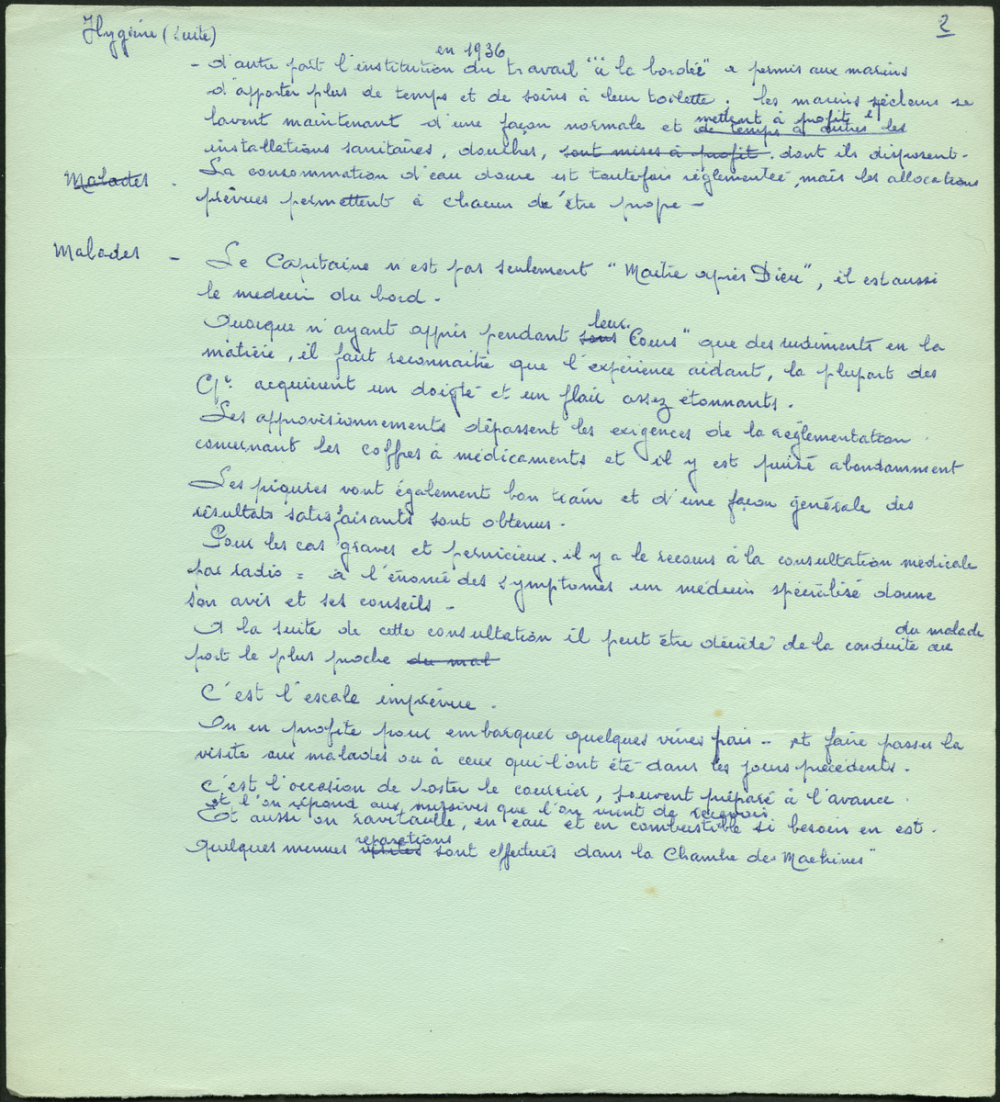 Hygiène (suite)
2
en 1936
- d'autre part l'institution du travail "à la bordée" a permis aux marins
d'apporter plus de temps et de soins à leur toilette. Les marins pêcheurs se
lavent maintenant d'une façon normale et de temps à autres les
mettent à profit
installations sanitaires, douches, sont mises à profit. dont ils disposent.
Malades - La consommation d'eau douce est toutefois réglementée, mais les allocations
prévues permettent à chacun de être propre -
Malades - Le Capitaine n'est pas seulement "Maître après Dieu", il est aussi
le medecin du bord.
leur
Quoique n'ayant appris pendant sous Cours" que des rudiments en la
matière, il faut reconnaitre que l'expérience aidant, la plupart des
Cnes acquièrent un doigté et un flair assez étonnants.
Les approvisionnements dépassent les exigences de la réglementation
concernant les coffres à médicaments et il y est puisé abondamment
Les piqures vont également bon train et d'une façon générale des
résultats satisfaisants sont obtenus.
Pour les cas graves et pernicieux. il y a le recours à la consultation médicale
par radio = à l'énoncé des symptomes un médecin spécialisé donne
son avis et ses conseils -
du malade
A la suite de cette consultation il peut être décidé de la conduite au
port le plus proche du mal
C'est l'escale imprévue.
On en profite pour embarquer quelques vivres frais - et faire passer la
visite aux malades ou à ceux qui l'ont été dans les jours précédents.
C'est l'occasion de poster le courrier, souvent préparé à l'avance
et l'on répond aux missives que l'on vient de recevoir
Et aussi on ravitaille, en eau et en combustible si besoin en est.
reparations
Quelques menues sont effectuées dans la Chambre des Machines"